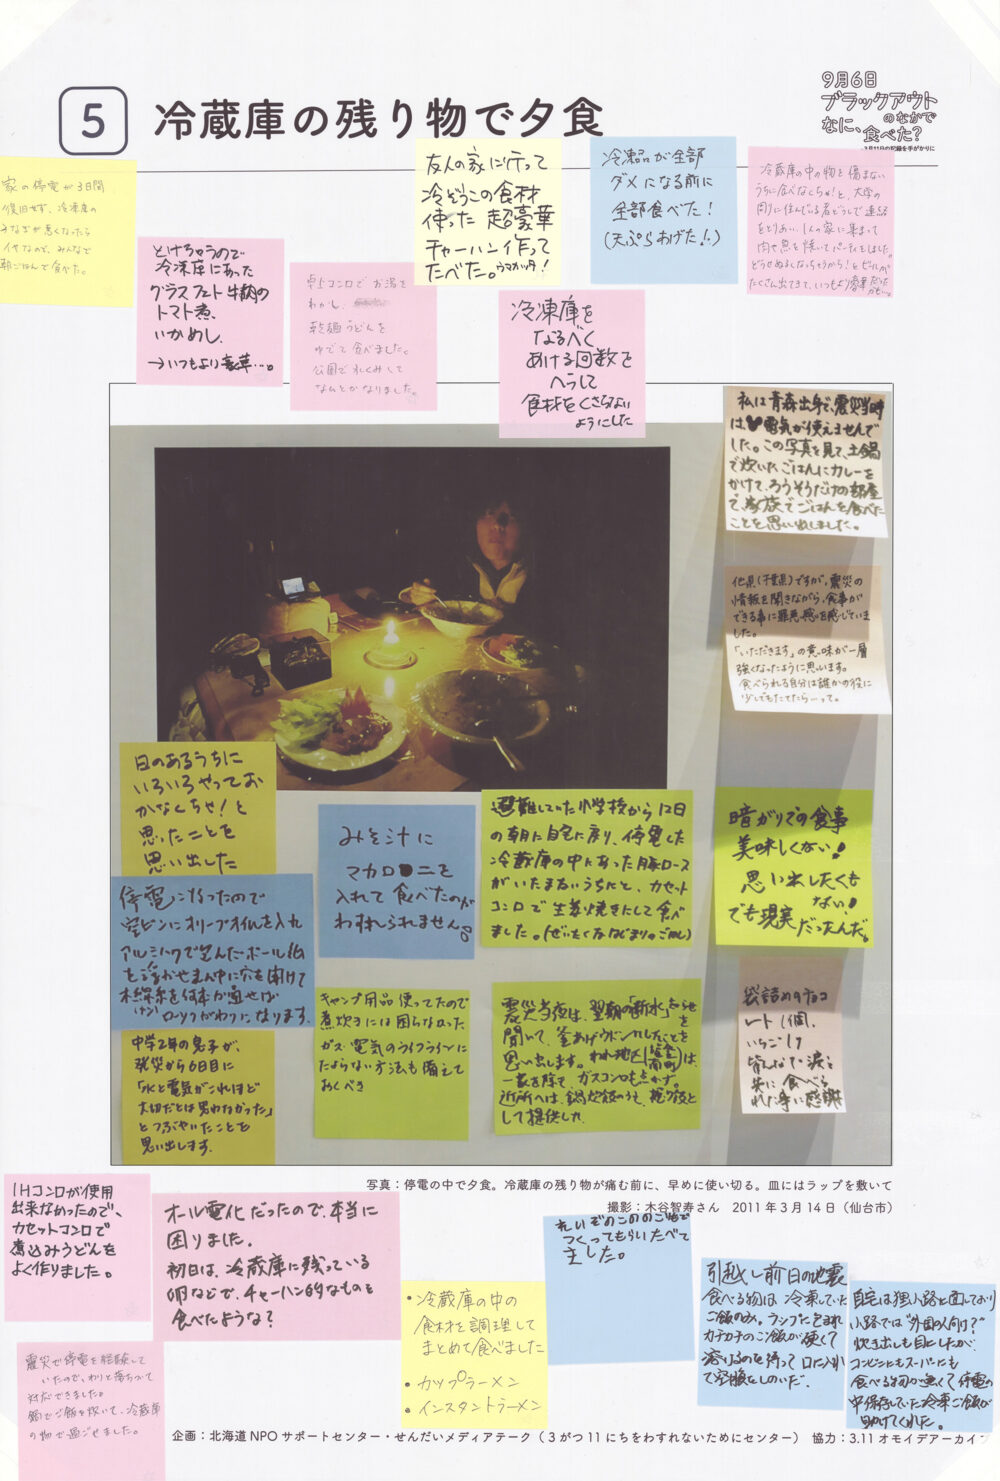 5
冷蔵庫の残り物で夕食
9月6日
ブラックアウト
のなかで
なに、食べた?
3月11日の記録を手がかりに
家の停電が3日間
復旧せず、冷凍庫の
うなぎが悪くなったら
イヤなので、みんなで
朝ごはんで食べた。
とけちゃうので
冷凍庫にあった
グラスフェト牛肉の
トマト煮、
いかめし、
→いつもより豪華…。
カセットコンロで お湯を
わかし、
乾麺うどんを
ゆでて食べました。
公園で水くみして
なんとかなりました。
友人の家に行って
冷ぞうこの食材
使った 超豪華
チャーハン作って
たべた。ウマカッタ!
冷凍品が全部
ダメになる前に
全部食べた!
(天ぷらあげた!!)
冷蔵庫の中の物を傷まない
うちに食べなくちゃ!と、大学の
周りに住んでいる者どうしで連絡
をとりあい、1人の家に集まって
肉や魚を焼いてパーティをしました。
どうせぬるくなっちゃうから!とビールが
たくさん出てきて、いつもより豪華だった
かも…。
冷凍庫を
なるべく
あける回数を
へらして
食材をくさらない
ようにした
私は青森出身で、震災当時
は電気が使えませんで
した。この写真を見て、土鍋
で炊いたごはんにカレーを
かけて、ろうそくだけの部屋
で、家族でごはんを食べた
ことを思い出しました。
他県(千葉県)ですが、震災の
情報を聞きながら、食事が
できる事に罪悪感を感じていま
した。
「いただきます」の意味が一層
強くなったように思います。
食べられる自分は誰かの役に
少しでもたてたら…って。
日のあるうちに
いろいろやってお
かなくちゃ!と
思ったことを
思い出した
みそ汁に
マカロニを
入れて食べたのが
わすれられません。
避難していた小学校から12日
の朝に自宅に戻り、停電した
冷蔵庫の中にあった豚ロース
がいたまないうちにと、カセット
コンロで生姜焼きにして食べ
ました。(ぜいたくなはじまりのごはん)
暗がりでの食事
美味しくない!
思い出したくも
ない!
でも現実だったんだ。
停電になったので
空ビンにオリーブオイルを入れ
アルミホイルで包んだボール紙
を浮かせまん中に穴を開けて
木綿糸を何本か通せば
ロウソクがわりになります。
中学2年の男子が、
震災から6日目に
「水と電気がこれほど
大切だとは思わなかった」
とつぶやいたことを
思い出します。
キャンプ用品使ってたので
煮炊きには困らなかった
ガス・電気のライフラインに
たよらない方法も備えて
おくべき
震災当夜は、翌朝の「断水」しらせを
聞いて、釜あげうどんにしたことを
思い出します。わが地区は
一軒を除て、ガスコンロも点かず。
近所へは、鍋炊飯のうえ、握り飯と
して提供した
袋詰めのチョコ
レート1個、
いちご1ケ
皆んなで涙と
共に食べら
れた事に感謝
写真:停電の中で夕食。冷蔵庫の残り物が痛む前に、早めに使い切る。皿にはラップを敷いて
撮影:木谷智寿さん 2011年3月14日(仙台市)
IHコンロが使用
出来なかったので、
カセットコンロで
煮込みうどんを
よく作りました。
オール電化だったので、本当に
困りました。
初日は、冷蔵庫に残っている
卵などで、チャーハン的なものを
食べたような?
れいぞうこのごはんで
つくってもらいたべて
ました。
引越し前日の地震
食べる物は冷凍していた
ご飯のみ。ラップに包まれ
カチカチのご飯が硬くて
溶けるのを待って口に入れ
て空腹をしのいだ。
自宅は狸小路と面しており
小路では"外国の人向け?"
炊き出しも目にしたが、
コンビニにもスーパーにも
食べる物が無くて停電の
中保存していた冷凍ご飯が
助けてくれた。
・冷蔵庫の中の
食材を調理して
まとめて食べました
・カップラーメン
・インスタントラーメン
震災で停電を経験して
いたので、わりと落ちついて
対応できました。
鍋でご飯を炊いて、冷蔵庫
の物で過ごせました。
企画:北海道NPOサポートセンター・せんだいメディアテーク(3がつ11にちをわすれないためにセンター) 協力:3.11オモイデアーカイブ